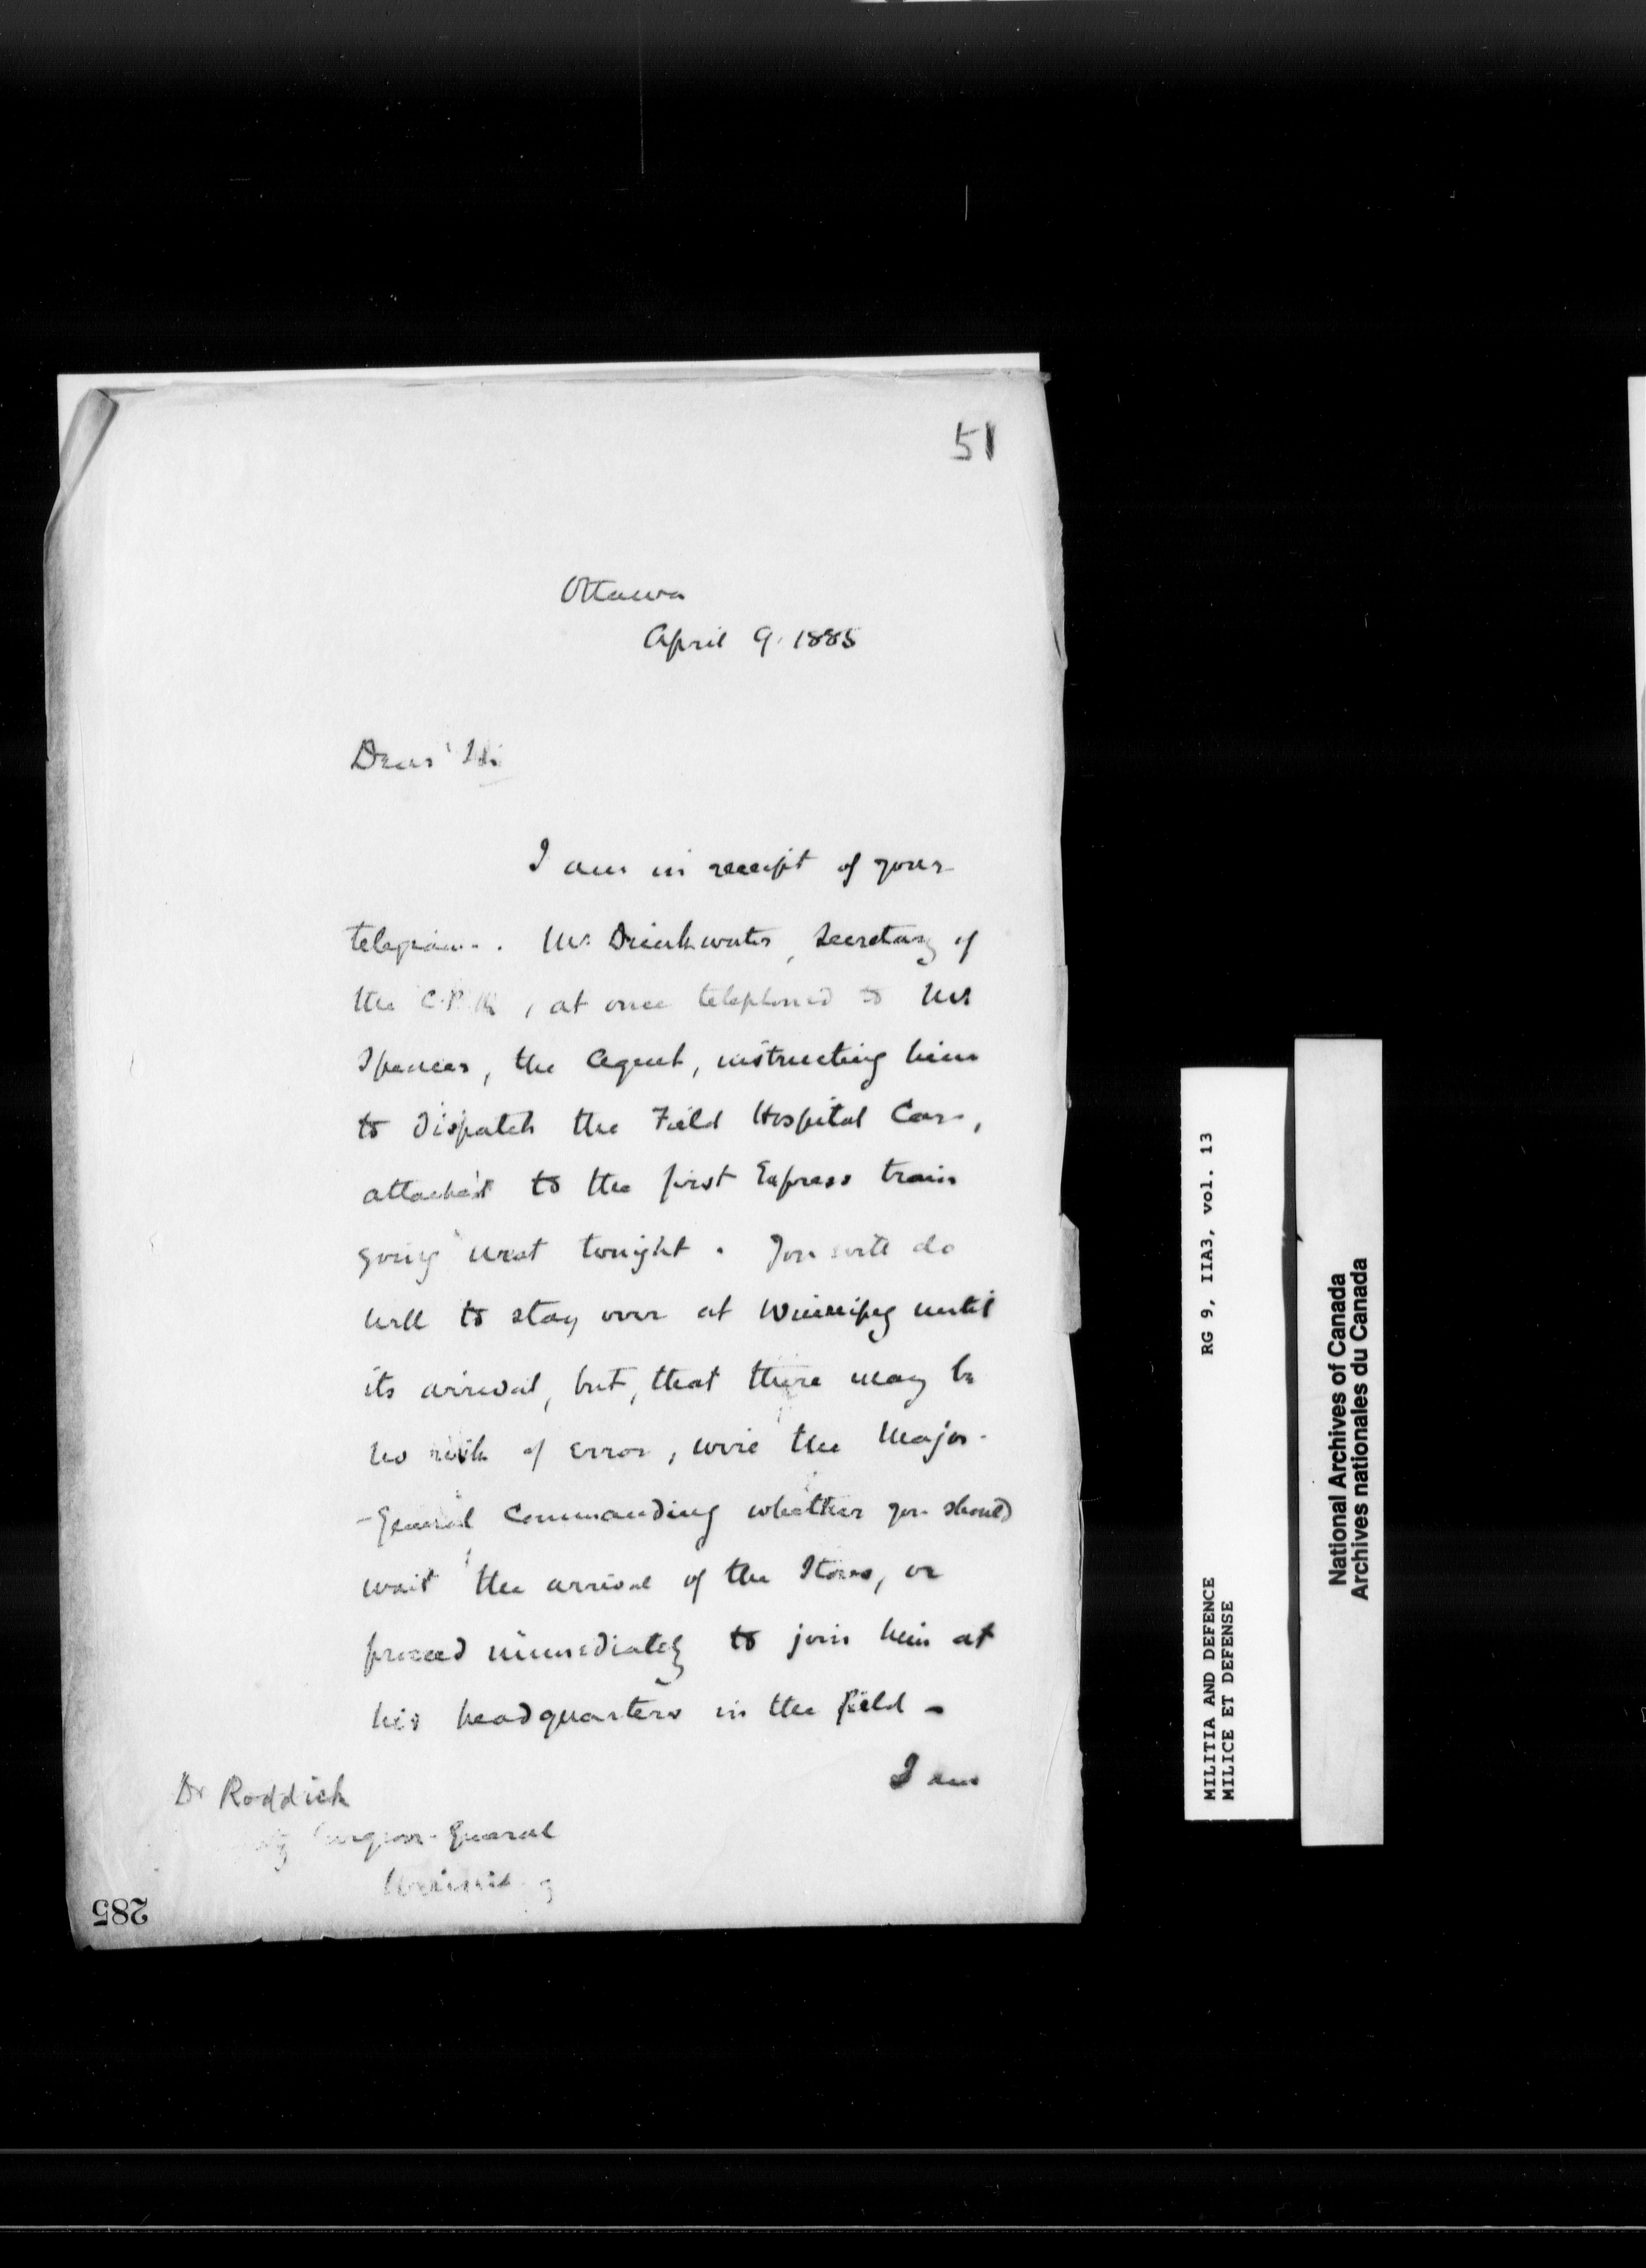 51
Ottawa
April 9. 1885
Dear Sir
I am in receipt of your
telegram. Mr Drinkwater, Secretary of
the C.P.R., at once telephoned to Mr
Spencer, the Agent, instructing him
to dispatch the Field Hospital Car,
attached to the first Express train
going west tonight. You will do
well to stay over at Winnipeg until
its arrival, but, that there may be
no risk of error, wire the Major-
-General Commanding whether you should
wait the arrival of the Stores, or
proceed immediately to join him at
his headquarters in the field -
I am
Dr Roddick
Surgeon-General
Winnipeg
285
MILITIA AND DEFENCE RG 9, IIA3, vol. 13
MILICE ET DEFENSE
National Archives of Canada
Archives nationales du Canada